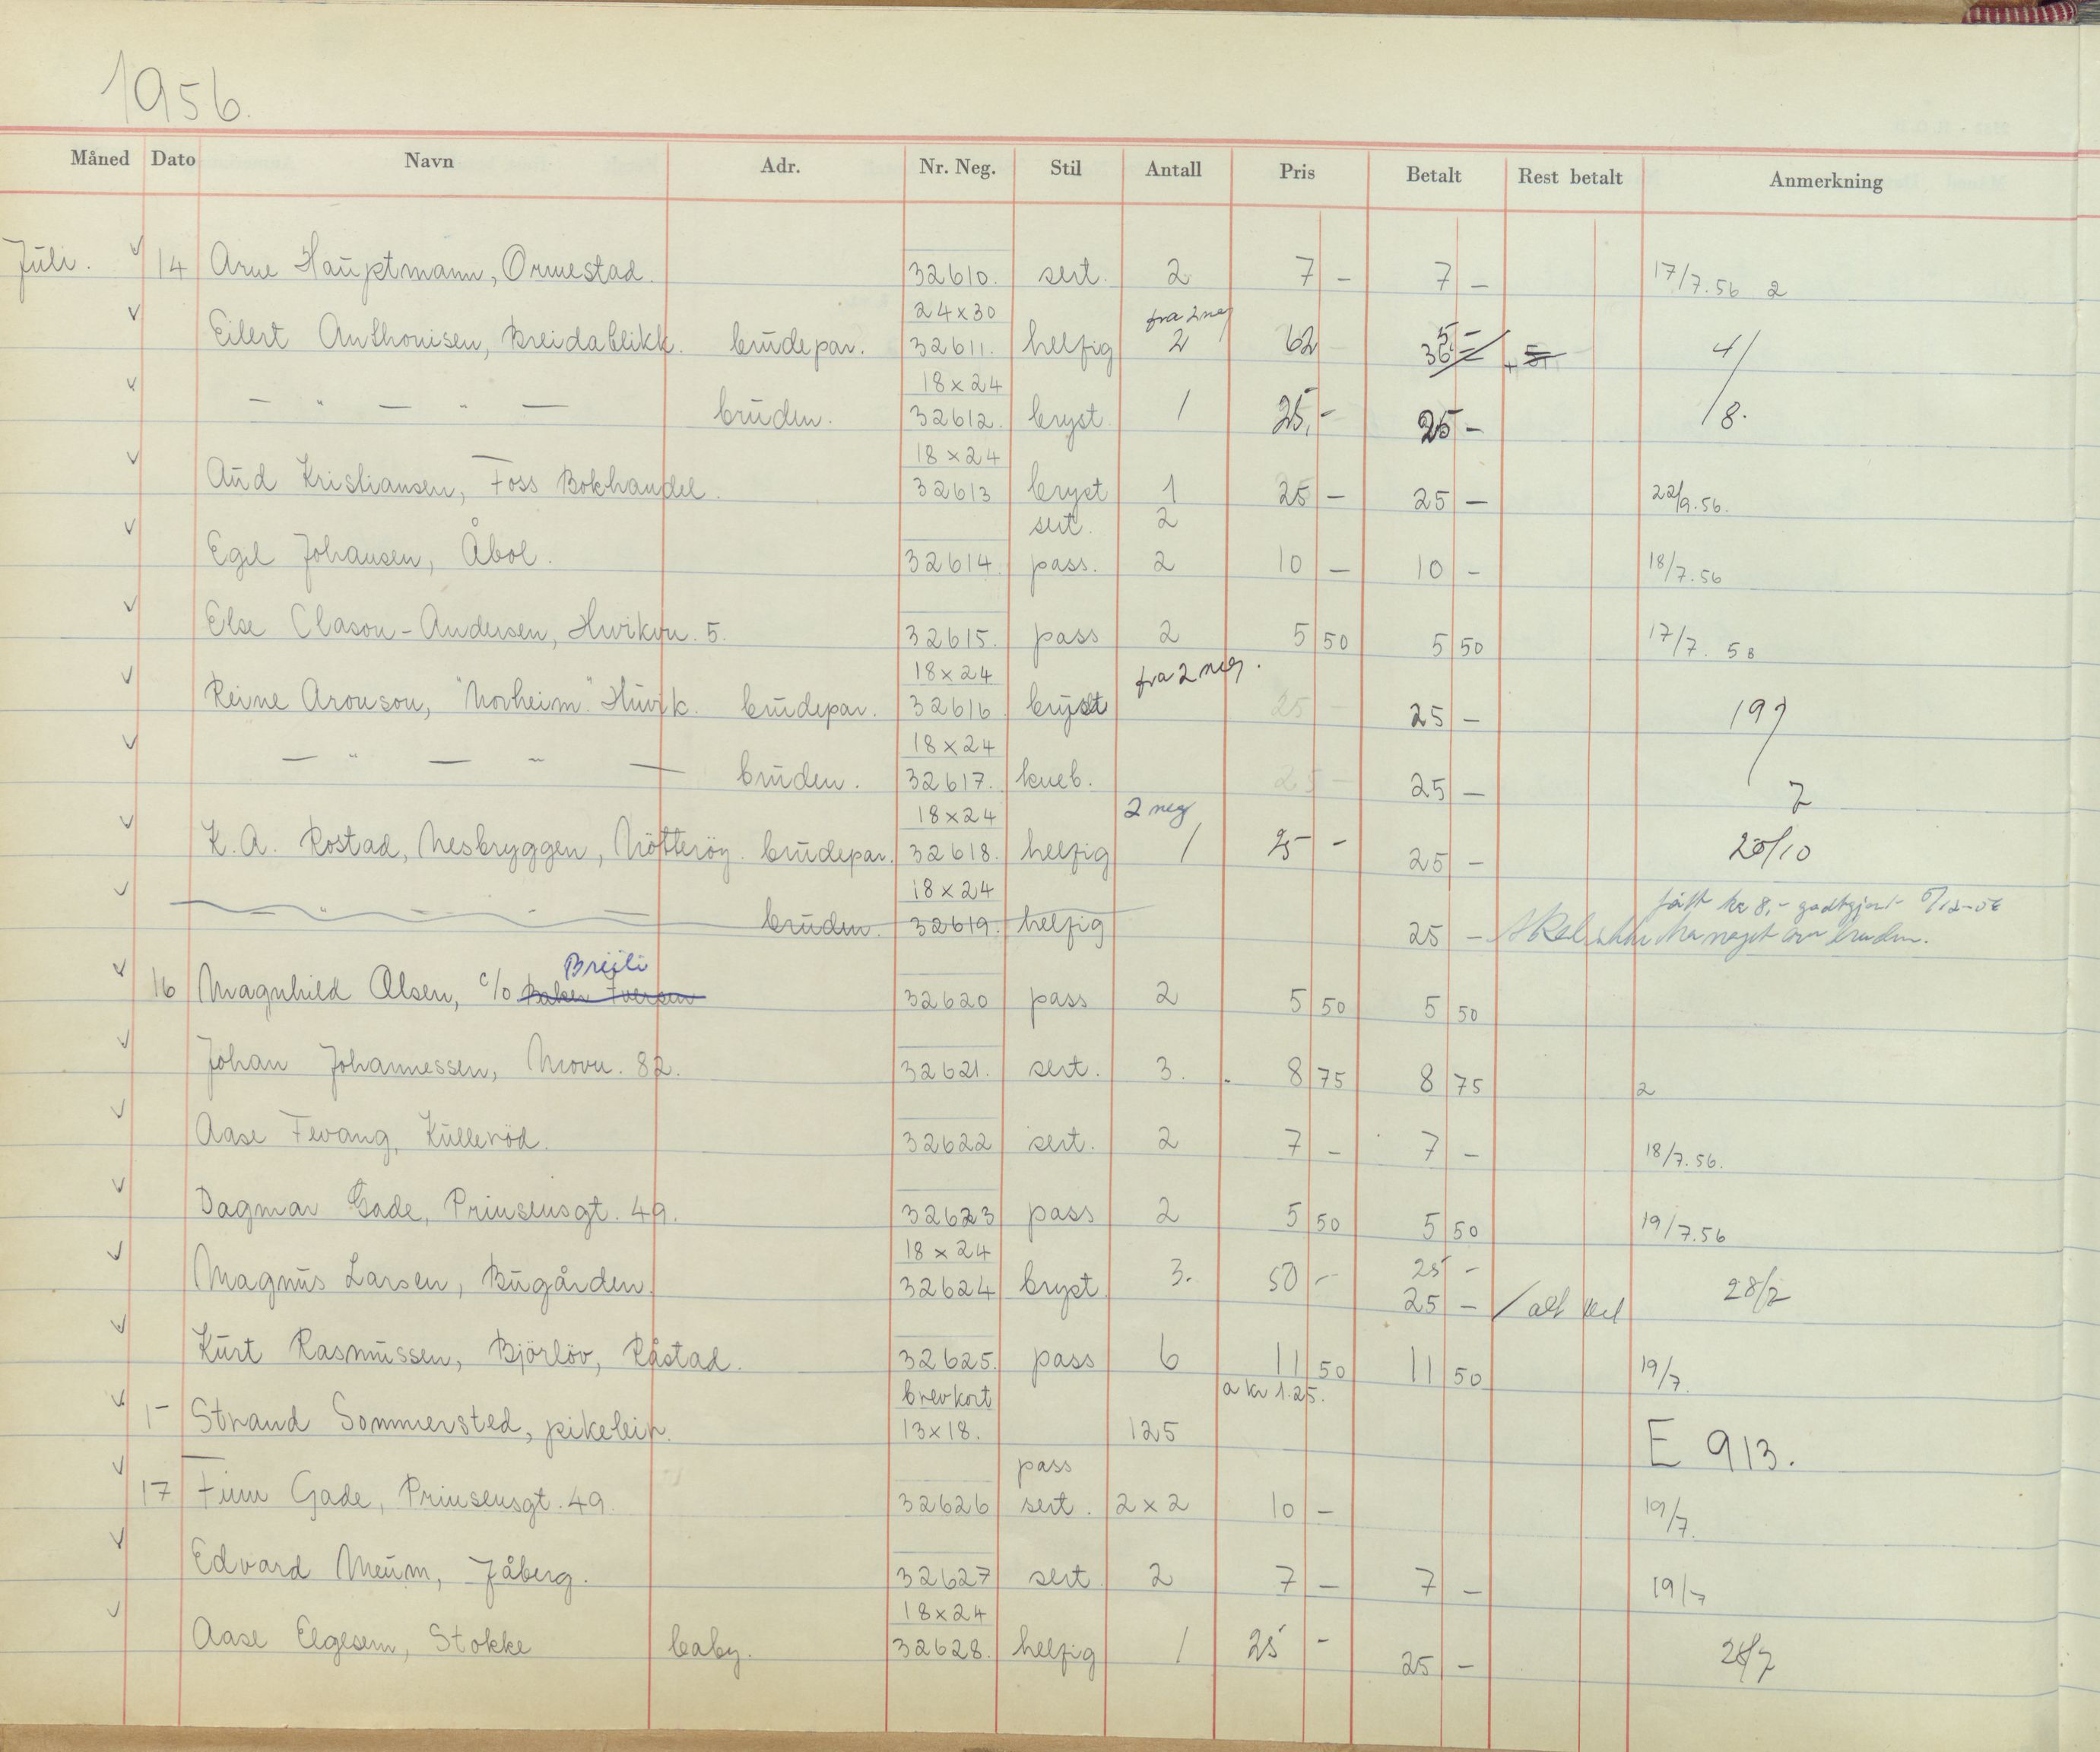 1956.
Måned Dato Navn Adr. Nr. Neg. Stil Antall Pris Betalt Rest betalt Anmerkning
Juli. 14 Arne Hauptmann, Ormestad. 32610. sert. 2 7 – 7 – 17/7.56 2
24x30 fra 2 neg
Eilert Anthonisen, Breidablikk. brudepar. 32611. helfig 2 62 4/8.
18x24
— " — " — bruden. 32612. bryst 1 25,- 25 –
18x24
Aud Kristiansen, Foss Bokhandel. 32613 bryst 1 25 – 25 – 22/9.56.
sert. 2
Egil Johansen, Åbol. 32614 pass. 2 10 – 10 – 18/7.56
Else Clason-Andersen, Hvikvn. 5. 32615. pass 2 5 50 5 50 17/7.
18x24 fra 2 neg.
Reine Aronson, "Norheim" Huvik. brudepar. 32616 bryst 25 – 25 – 19/7
18x24
— " — " — bruden. 32617. kneb. 25 – 25 –
18x24 2 neg
K.A. Rostad, Nesbryggen, Nötteröy. brudepar. 32618. helfig 1 25 - 25 – 20/10
18x24 kr 8,-
— " — " — bruden. 32619. helfig 25 – bruden.
Breili
16 Magnhild Olsen, c/o Baker Iversen 32620 pass 2 5 50 5 50
Johan Johannessen, Movn. 82. 32621. sert. 3. 8 75 8 75 2
Aase Fevang, Kullerød. 32622 sert. 2 7 – 7 – 18/7.56.
Dagmar Gade, Prinsensgt. 49. 32623 pass 2 5 50 5 50 19/7.56
18x24 25 -
Magnus Larsen, Bugården. 32624 bryst 3. 50 – 25 – / alt bet 28/7
Kurt Rasmussen, Björlöv, Råstad. 32625. pass 6 11 50 11 50 19/7.
brevkort a kr 1.25.
1- Strand Sommersted, pikeleir. 13x18. 125 E 913.
pass
17 Finn Gade, Prinsensgt. 49. 32626 sert. 2x2 10 – 19/7.
Edvard Meum, Jåberg. 32627 sert 2 7 – 7 – 19/7
18x24
Aase Elgesem, Stokke baby. 32628. helfig 1 25 - 25 – 28/7